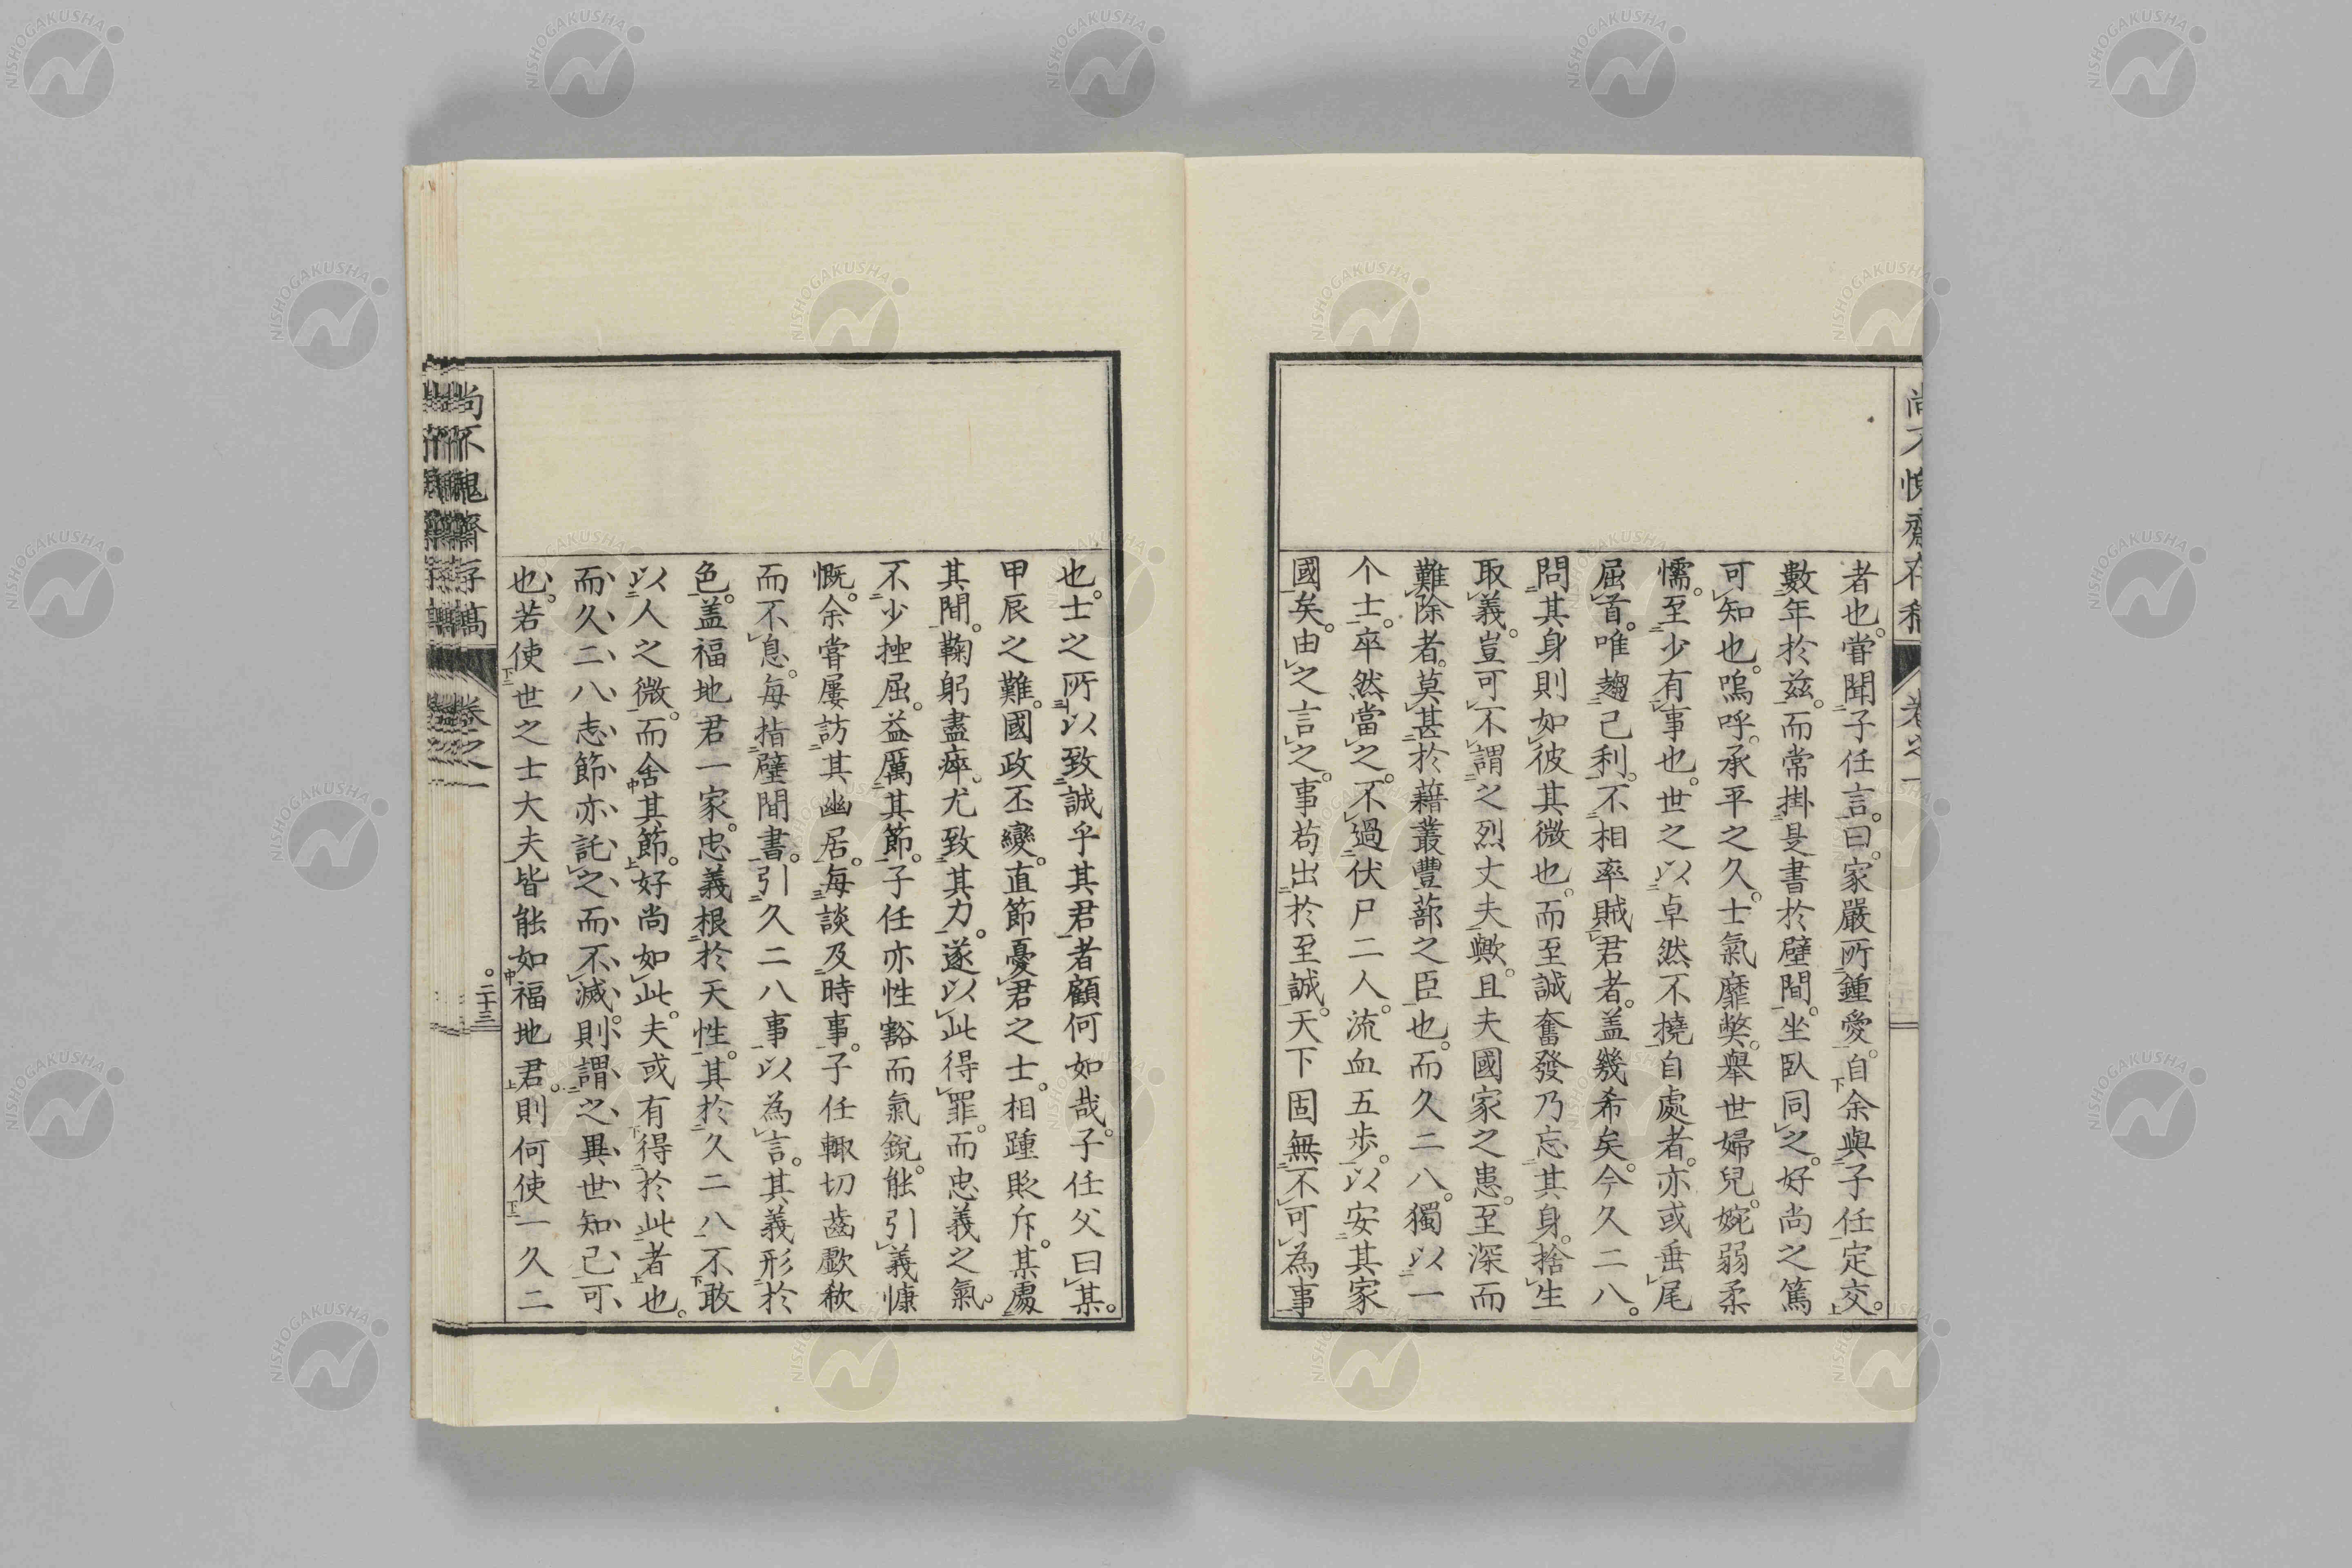 者也。甞聞子任言。曰。家嚴所鍾愛。自余與子任定交。
數年於茲。而常掛是書於壁間。坐臥同之。好尚之篤
可知也。嗚呼。承平之久。士氣靡弊。舉世婦兒。婉弱柔
懦。至少有事也。世之以卓然不撓自處者。亦或垂尾
屈首。唯趨己利。不相率賊君者。盖幾希矣。今久二八。
問其身則如彼其微也。而至誠奮發乃忘其身。捨生
取義。豈可不謂之烈丈夫歟。且夫國家之患。至深而
難除者。莫甚於藉叢豐蔀之臣也。而久二八。獨以一
个士。卒然當之。不過伏尸二人。流血五步。以安其家
國矣。由之言之。事苟出於至誠。天下固無不可為事
也。士之所以致誠乎其君者顧何如哉。子任父曰某。
甲辰之難。國政丕變。直節憂君之士。相踵貶斥。某處
其間。鞠躬盡瘁。尤致其力。遂以此得罪。而忠義之氣。
不少挫屈。益厲其節。子任亦性豁而氣銳。能引義慷
慨。余甞屢訪其幽居。每談及時事。子任輙切齒歔欷
而不息。每指壁間書。引久二八事以為言。其義形於
色。盖福地君一家。忠義根於天性。其於久二八不敢
以人之微。而舍其節。好尚如此。夫或有得於此者也。
而久二八志節亦託之而不滅。則謂之異世知己可
也。若使世之士大夫皆能如福地君。則何使一久二
尚不愧齋存稿
卷之一
二十三